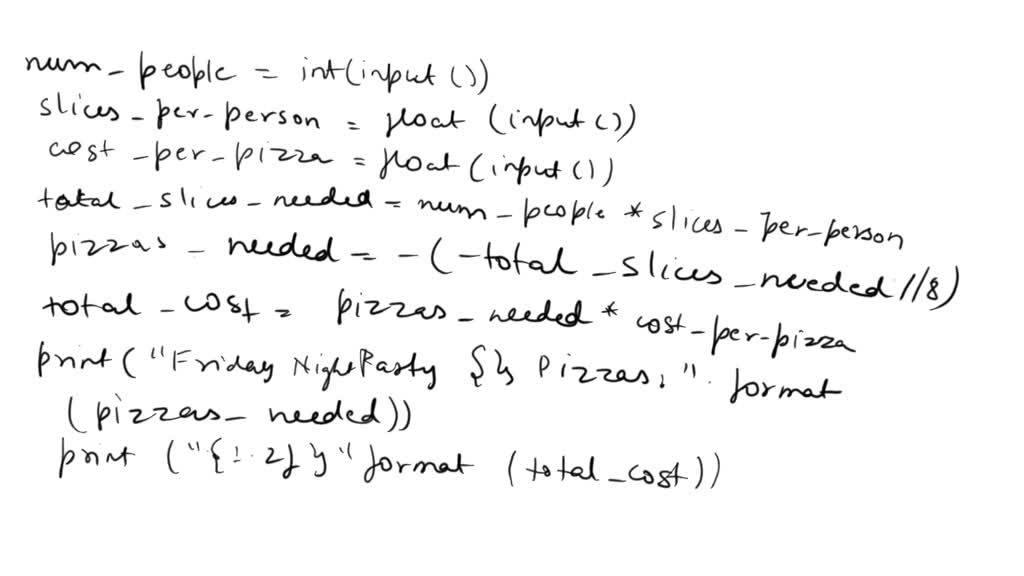 num_people = int(input())
slices_per_person = float (input())
cost_per_pizza = float(input())
total_slices_needed = num_people * slices_per_person
pizzas_needed = -(-total_slices_needed//8)
total_cost = pizzas_needed * cost_per_pizza
print("Friday Night Party {} Pizzas." . format
(pizzas_needed))
print ("{:.2f}" format (total_cost))